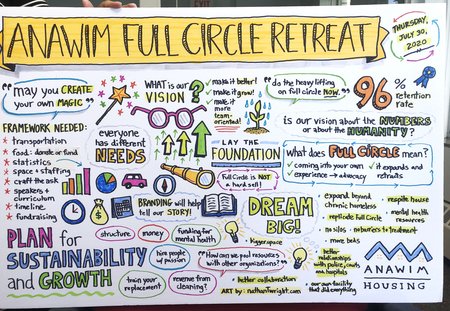 EXIT
ANAWIM FULL CIRCLE RETREAT
THURSDAY,
JULY 30,
2020
"may you CREATE
your own MAGIC"
WHAT is our
VISION?
make it better!
make it grow!
make it
more
team-
oriented!
"do the heavy lifting
on full circle NOW."
96%
retention
rate
is our vision about the NUMBERS
or about the HUMANITY?
FRAMEWORK NEEDED:
transportation
food: donate or fund
statistics
space + staffing
craft the ask
speakers +
curriculum
timeline
fundraising
everyone
has different
NEEDS
LAY THE
FOUNDATION
Full Circle is NOT
a hard sell!
what does FULL CIRCLE mean?
coming into your own
experience → advocacy
it expands and
recruits
BRANDING will help
tell our STORY!
DREAM
BIG!
bigger space
expand beyond
chronic homeless
replicate Full Circle
no silos
no barriers to treatment
more beds
respite house
mental health
resources
better
relationships
with police, courts
and hospitals
our own facility
that did everything
PLAN for
SUSTAINABILITY
and GROWTH
structure
money
funding for
mental health
hire people
w/ passion
"How can we pool resources
with other organizations?"
train your
replacement
reverse from
cleaning?
better collaboration
ART by: nathanTwright.com
ANAWIM
HOUSING